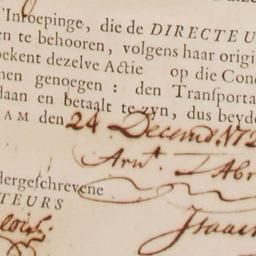 'Inroepinge, die de DIRECTEU
en te behooren, volgens haar origi
bekent dezelve Actie op die Cond
nen genoegen: den Transporta
daan en betaalt te zyn, dus beyde
AM den 24 Decemb. 172
Arnt.
dergeschrevene
TEURS
Isaac